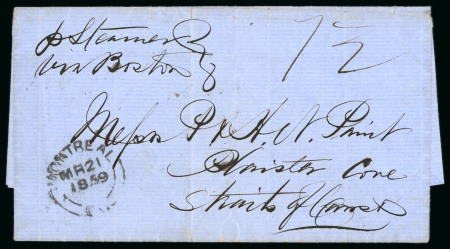 p Steamer
via Boston
7½
Messrs P & H. N. Paint
Plaister Cove
Straits of Canso
MONTREAL
MR 21
1859